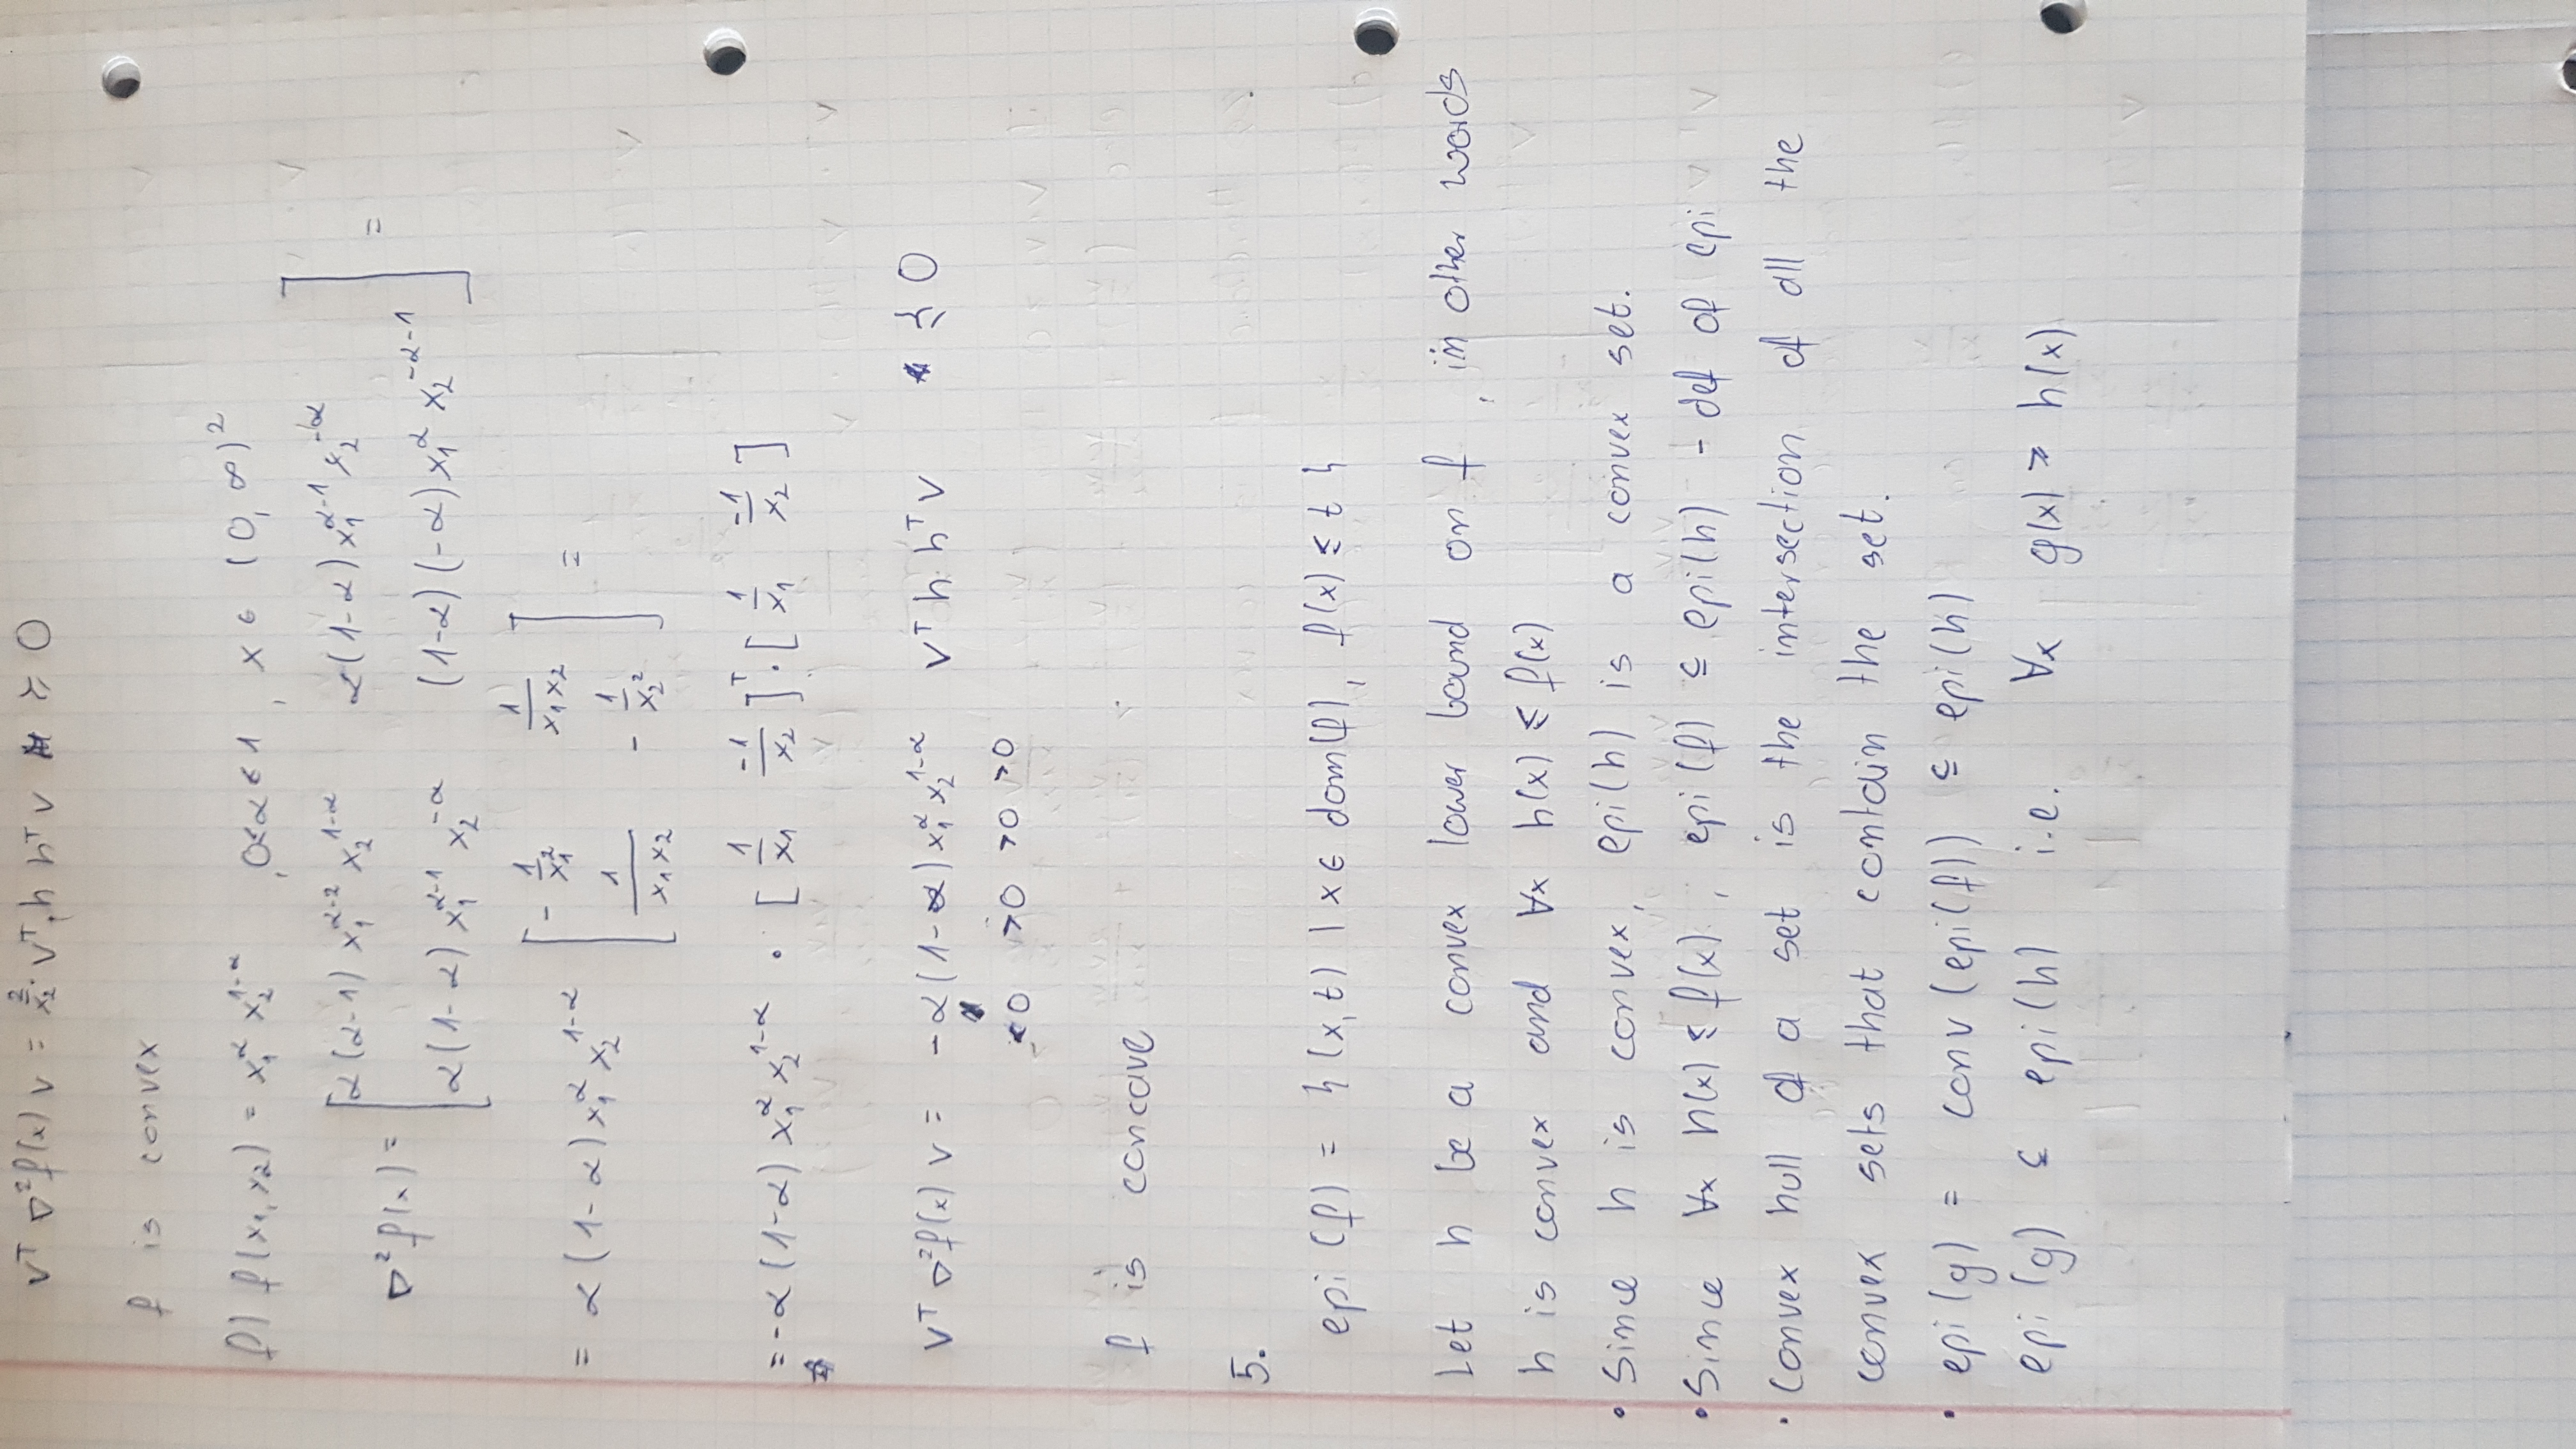 vᵀ ∇²f(x) v = 2/x₂ · vᵀ h hᵀ v ≽ 0
f is convex
f) f(x₁, x₂) = x₁^α x₂^(1-α) , 0≤α≤1 , x ∈ (0, ∞)²
∇²f(x) = [ α(α-1) x₁^(α-2) x₂^(1-α)   α(1-α) x₁^(α-1) x₂^(-α) ] =
[ α(1-α) x₁^(α-1) x₂^(-α)   (1-α)(-α) x₁^α x₂^(-α-1) ]
= α(1-α) x₁^α x₂^(1-α) [ -1/x₁²   1/(x₁x₂) ] =
[ 1/(x₁x₂)   -1/x₂² ]
= -α(1-α) x₁^α x₂^(1-α) · [ 1/x₁   -1/x₂ ]ᵀ · [ 1/x₁   -1/x₂ ]
vᵀ ∇²f(x) v = -α(1-α) x₁^α x₂^(1-α) vᵀ h hᵀ v ≼ 0
<0 >0 >0 >0
f is concave
5.
epi(f) = {(x,t) | x ∈ dom(f), f(x) ≤ t}
Let h be a convex lower bound on f, in other words
h is convex and ∀x h(x) ≤ f(x)
• Since h is convex, epi(h) is a convex set.
• Since ∀x h(x) ≤ f(x), epi(f) ⊆ epi(h) - def of epi
• Convex hull of a set is the intersection of all the
convex sets that contain the set.
• epi(g) = conv(epi(f)) ⊆ epi(h)
epi(g) ⊆ epi(h) i.e. ∀x g(x) ≥ h(x)